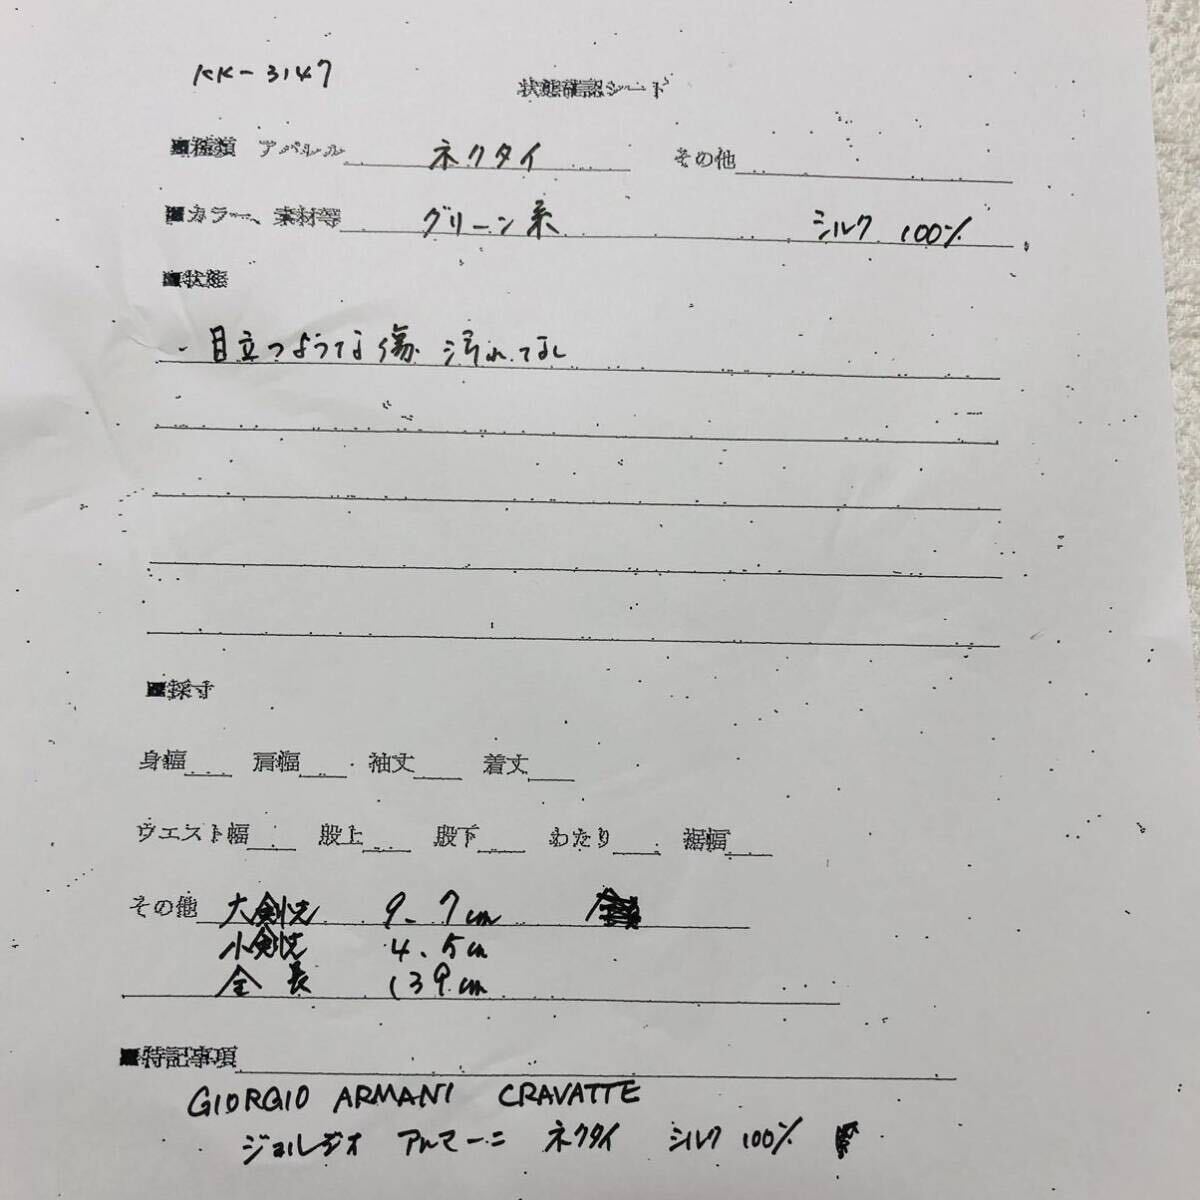 KK-3147
状態確認シート
■種類 アパレル ネクタイ その他
■カラー、素材等 グリーン系 シルク 100%
■状態
・目立つような傷、汚れ、なし
■採寸
身幅 肩幅 袖丈 着丈
ウエスト幅 股上 股下 わたり 裾幅
その他 大剣 9.7cm
小剣 4.5cm
全長 139cm
■特記事項
GIORGIO ARMANI CRAVATTE
ジョルジオ アルマーニ ネクタイ シルク 100%